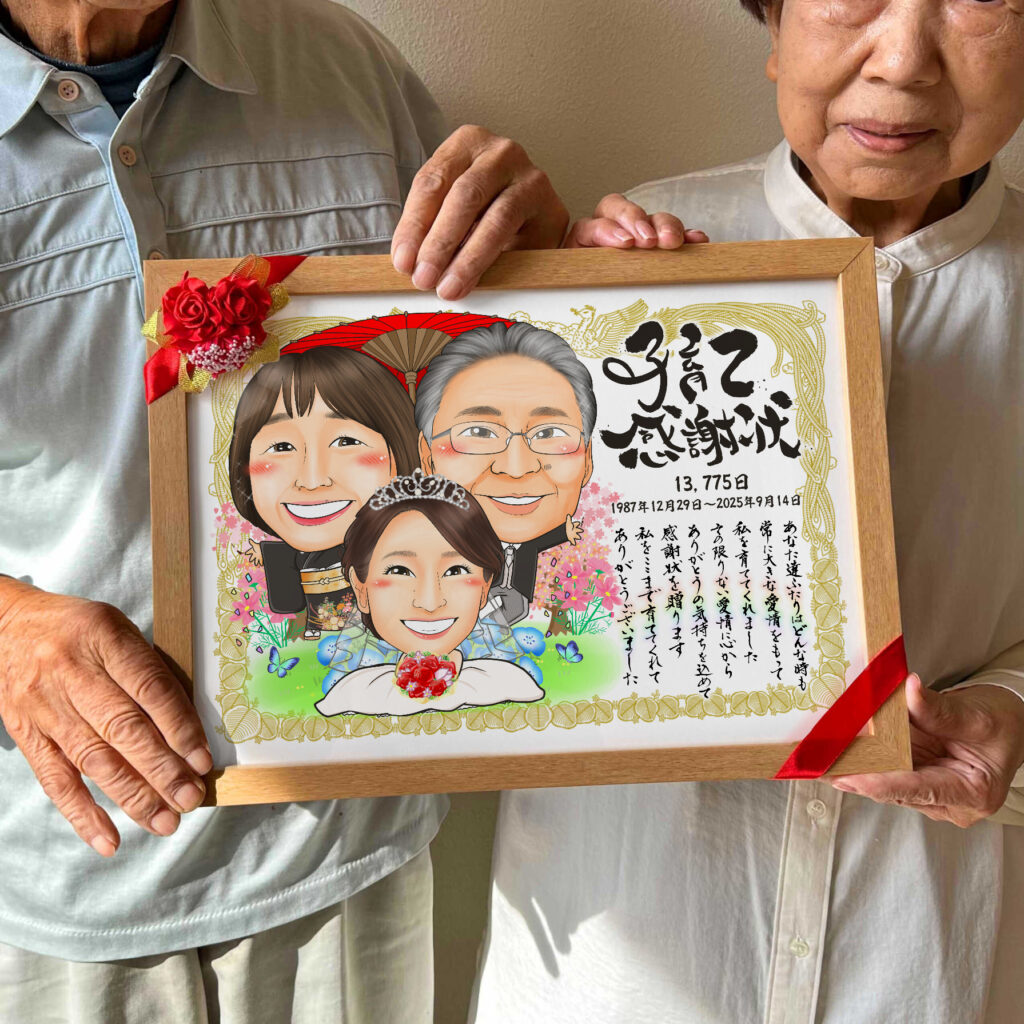 子育て
感謝状
13,775日
1987年12月29日～2025年9月14日
あなた達ふたりはどんな時も
常に大きな愛情をもって
私を育ててくれました
その限りない愛情に心から
ありがとうの気持ちを込めて
感謝状を贈ります
私をここまで育ててくれて
ありがとうございました